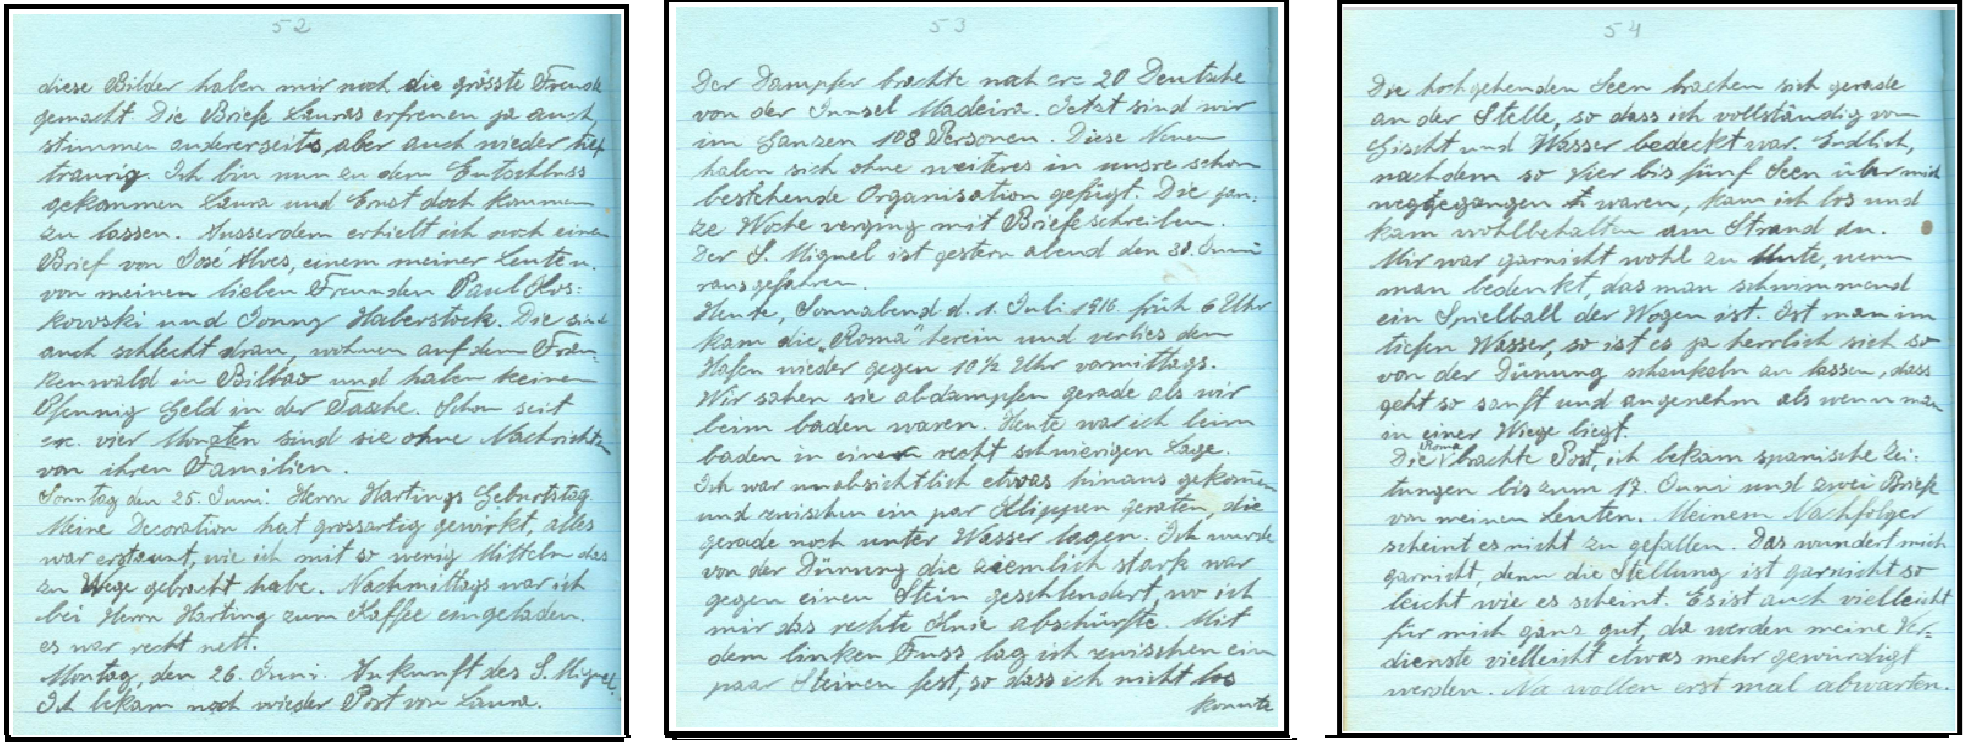 52
diese Bilder haben mir noch die grösste Freude
gemacht. Die Briefe Lauras erfreuen ja auch,
stimmen andererseits, aber auch wieder tief
traurig. Ich bin nun zu dem Entschluss
gekommen Laura und Ernst doch kommen
zu lassen. Ausserdem erhielt ich noch einen
Brief von José Alves, einem meiner Leute u.
von meinen lieben Freunden Paul Kos-
kowski und Jonny Haberstock. Die sind
auch schlecht dran, wohnen auf dem Fran-
kenwald in Bilbao und haben keinen
Pfennig Geld in der Tasche. Schon seit
crc. vier Monaten sind sie ohne Nachricht
von ihren Familien.
Sonntag den 25. Juni: Herrn Hartings Geburtstag.
Meine Decoration hat grossartig gewirkt, alles
war erstaunt, wie ich mit so wenig Mitteln das
zu Wege gebracht habe. Nachmittags war ich
bei Herrn Harting zum Kaffee eingeladen.
es war recht nett.
Montag, den 26. Juni. Ankunft des S. Miguel.
Ich bekam noch wieder Post von Laura.
53
Der Dampfer brachte noch crc 20 Deutsche
von der Innsel Madeira. Jetzt sind wir
im Ganzen 108 Personen. Diese Neuen
haben sich ohne weiteres in unsre schon
bestehende Organisation gefügt. Die gan-
ze Woche verging mit Briefeschreiben.
Der S. Miguel ist gestern abend den 30. Juni
rausgefahren.
Heute, Sonnabend d. 1. Juli 1916. früh 6 Uhr
kam die „Roma" herein und verlies den
Hafen wieder gegen 10 ½ Uhr vormittags.
Wir sahen sie abdampfen gerade als wir
beim baden waren. Heute war ich beim
baden in einer recht schwierigen Lage.
Ich war unabsichtlich etwas hinaus gekomen
und zwischen ein par Klippen geraten, die
gerade noch unter Wasser lagen. Ich wurde
von der Dünung die ziemlich stark war
gegen einen Stein geschleudert, wo ich
mir das rechte Knie abschürfte. Mit
dem linken Fuss lag ich zwischen ein
paar Steinen fest, so dass ich nicht los
konnte
54
Die hochgehenden Seen brachen sich gerade
an der Stelle, so dass ich vollständig von
Gischt und Wasser bedeckt war. Endlich,
nachdem so vier bis fünf Seen über mich
weggegangen waren, kam ich los und
kam wohlbehalten am Strand an.
Mir war garnicht wohl zu Mute, wenn
man bedenkt, das man schwimmend
ein Spielball der Wogen ist. Ist man im
tiefen Wasser, so ist es ja herrlich sich so
von der Dünung schaukeln zu lassen, dass
geht so sanft und angenehm als wenn man
in einer Wiege liegt.
Die Roma brachte Post, ich bekam spanische Zei-
tungen bis zum 17. Juni und zwei Briefe
von meinen Leuten. Meinem Nachfolger
scheint es nicht zu gefallen. Das wundert mich
garnicht, denn die Stellung ist garnicht so
leicht wie es scheint. Es ist auch vielleicht
für mich ganz gut, da werden meine Ver-
dienste vielleicht etwas mehr gewürdigt
werden. Na wollen erst mal abwarten.